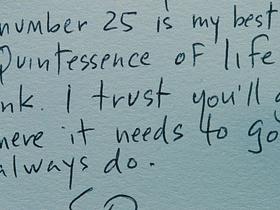 number 25 is my best
Quintessence of life
nk. I trust you'll
here it needs to go
always do.